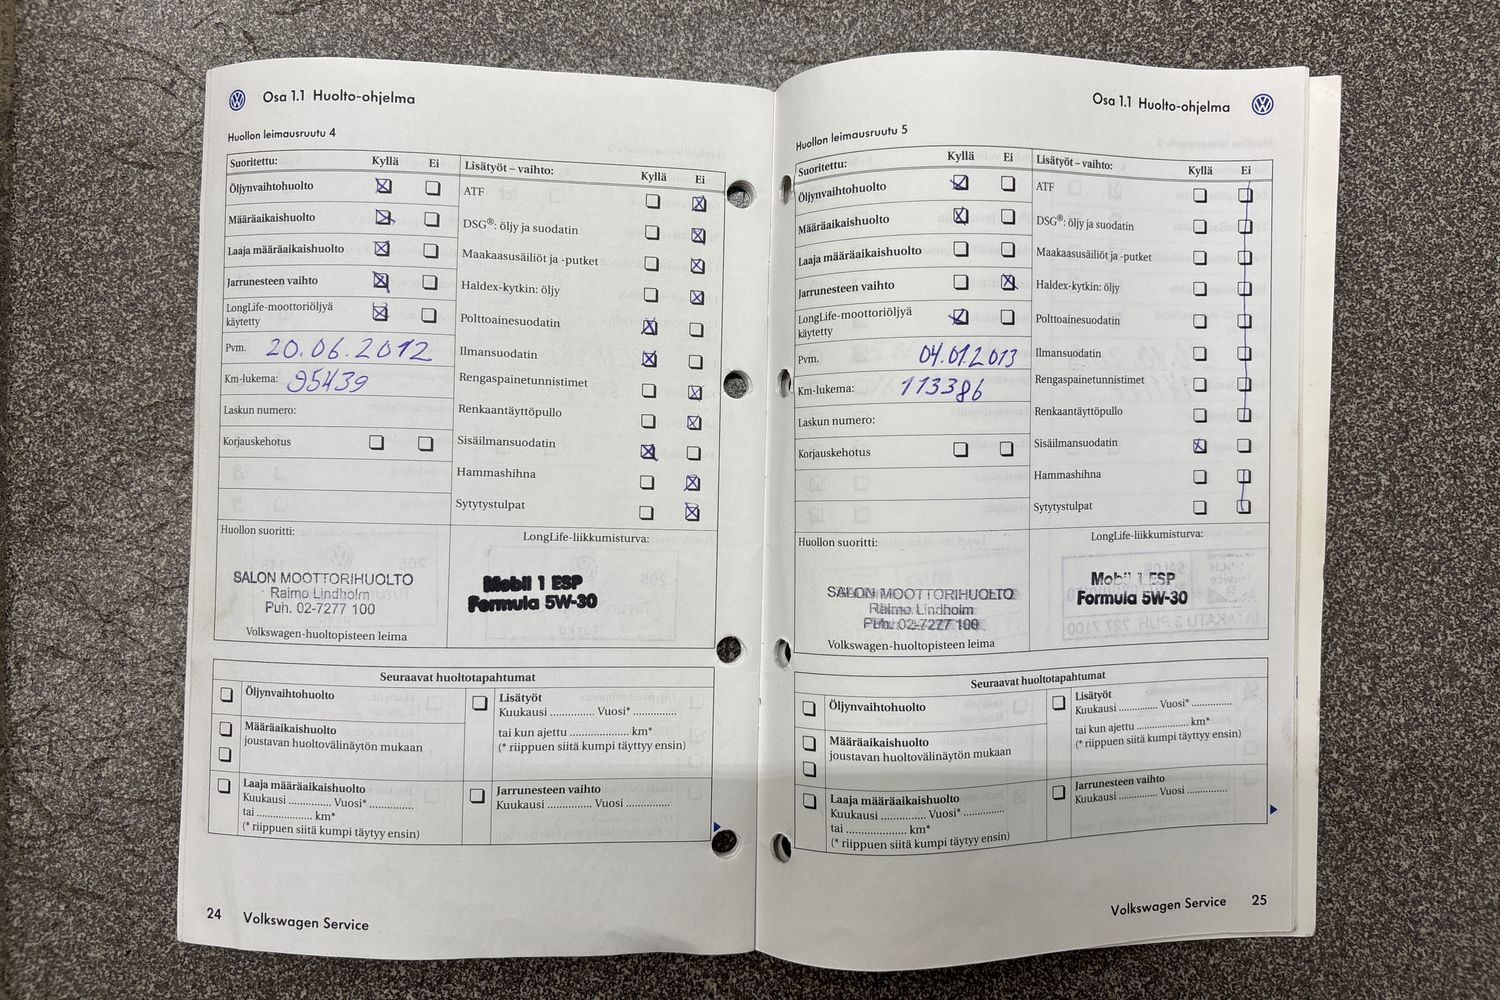 Osa 1.1 Huolto-ohjelma
Huollon leimausruutu 4
Suoritettu: Kyllä Ei
Öljynvaihtohuolto
Määräaikaishuolto
Laaja määräaikaishuolto
Jarrunesteen vaihto
LongLife-moottoriöljyä
käytetty
Pvm. 20.06.2012
Km-lukema: 95439
Laskun numero:
Korjauskehotus
Lisätyöt – vaihto: Kyllä Ei
ATF
DSG®: öljy ja suodatin
Maakaasusäiliöt ja -putket
Haldex-kytkin: öljy
Polttoainesuodatin
Ilmansuodatin
Rengaspainetunnistimet
Renkaantäyttöpullo
Sisäilmansuodatin
Hammashihna
Sytytystulpat
Huollon suoritti:
SALON MOOTTORIHUOLTO
Raimo Lindholm
Puh. 02-7277 100
Volkswagen-huoltopisteen leima
LongLife-liikkumisturva:
Mobil 1 ESP
Formula 5W-30
Seuraavat huoltotapahtumat
Öljynvaihtohuolto
Määräaikaishuolto
joustavan huoltovälinäytön mukaan
Laaja määräaikaishuolto
Kuukausi .............. Vuosi* ..............
tai ................... km*
(* riippuen siitä kumpi täytyy ensin)
Lisätyöt
Kuukausi .............. Vuosi* ..............
tai kun ajettu ................... km*
(* riippuen siitä kumpi täyttyy ensin)
Jarrunesteen vaihto
Kuukausi .............. Vuosi ..............
24 Volkswagen Service
Osa 1.1 Huolto-ohjelma
Huollon leimausruutu 5
Suoritettu: Kyllä Ei
Öljynvaihtohuolto
Määräaikaishuolto
Laaja määräaikaishuolto
Jarrunesteen vaihto
LongLife-moottoriöljyä
käytetty
Pvm. 04.01.2013
Km-lukema: 113386
Laskun numero:
Korjauskehotus
Lisätyöt – vaihto: Kyllä Ei
ATF
DSG®: öljy ja suodatin
Maakaasusäiliöt ja -putket
Haldex-kytkin: öljy
Polttoainesuodatin
Ilmansuodatin
Rengaspainetunnistimet
Renkaantäyttöpullo
Sisäilmansuodatin
Hammashihna
Sytytystulpat
Huollon suoritti:
SALON MOOTTORIHUOLTO
Raimo Lindholm
Puh. 02-7277 100
Volkswagen-huoltopisteen leima
LongLife-liikkumisturva:
Mobil 1 ESP
Formula 5W-30
Seuraavat huoltotapahtumat
Öljynvaihtohuolto
Määräaikaishuolto
joustavan huoltovälinäytön mukaan
Laaja määräaikaishuolto
Kuukausi .............. Vuosi* ..............
tai ................... km*
(* riippuen siitä kumpi täytyy ensin)
Lisätyöt
Kuukausi .............. Vuosi* ..............
tai kun ajettu ................... km*
(* riippuen siitä kumpi täyttyy ensin)
Jarrunesteen vaihto
Kuukausi .............. Vuosi ..............
Volkswagen Service 25